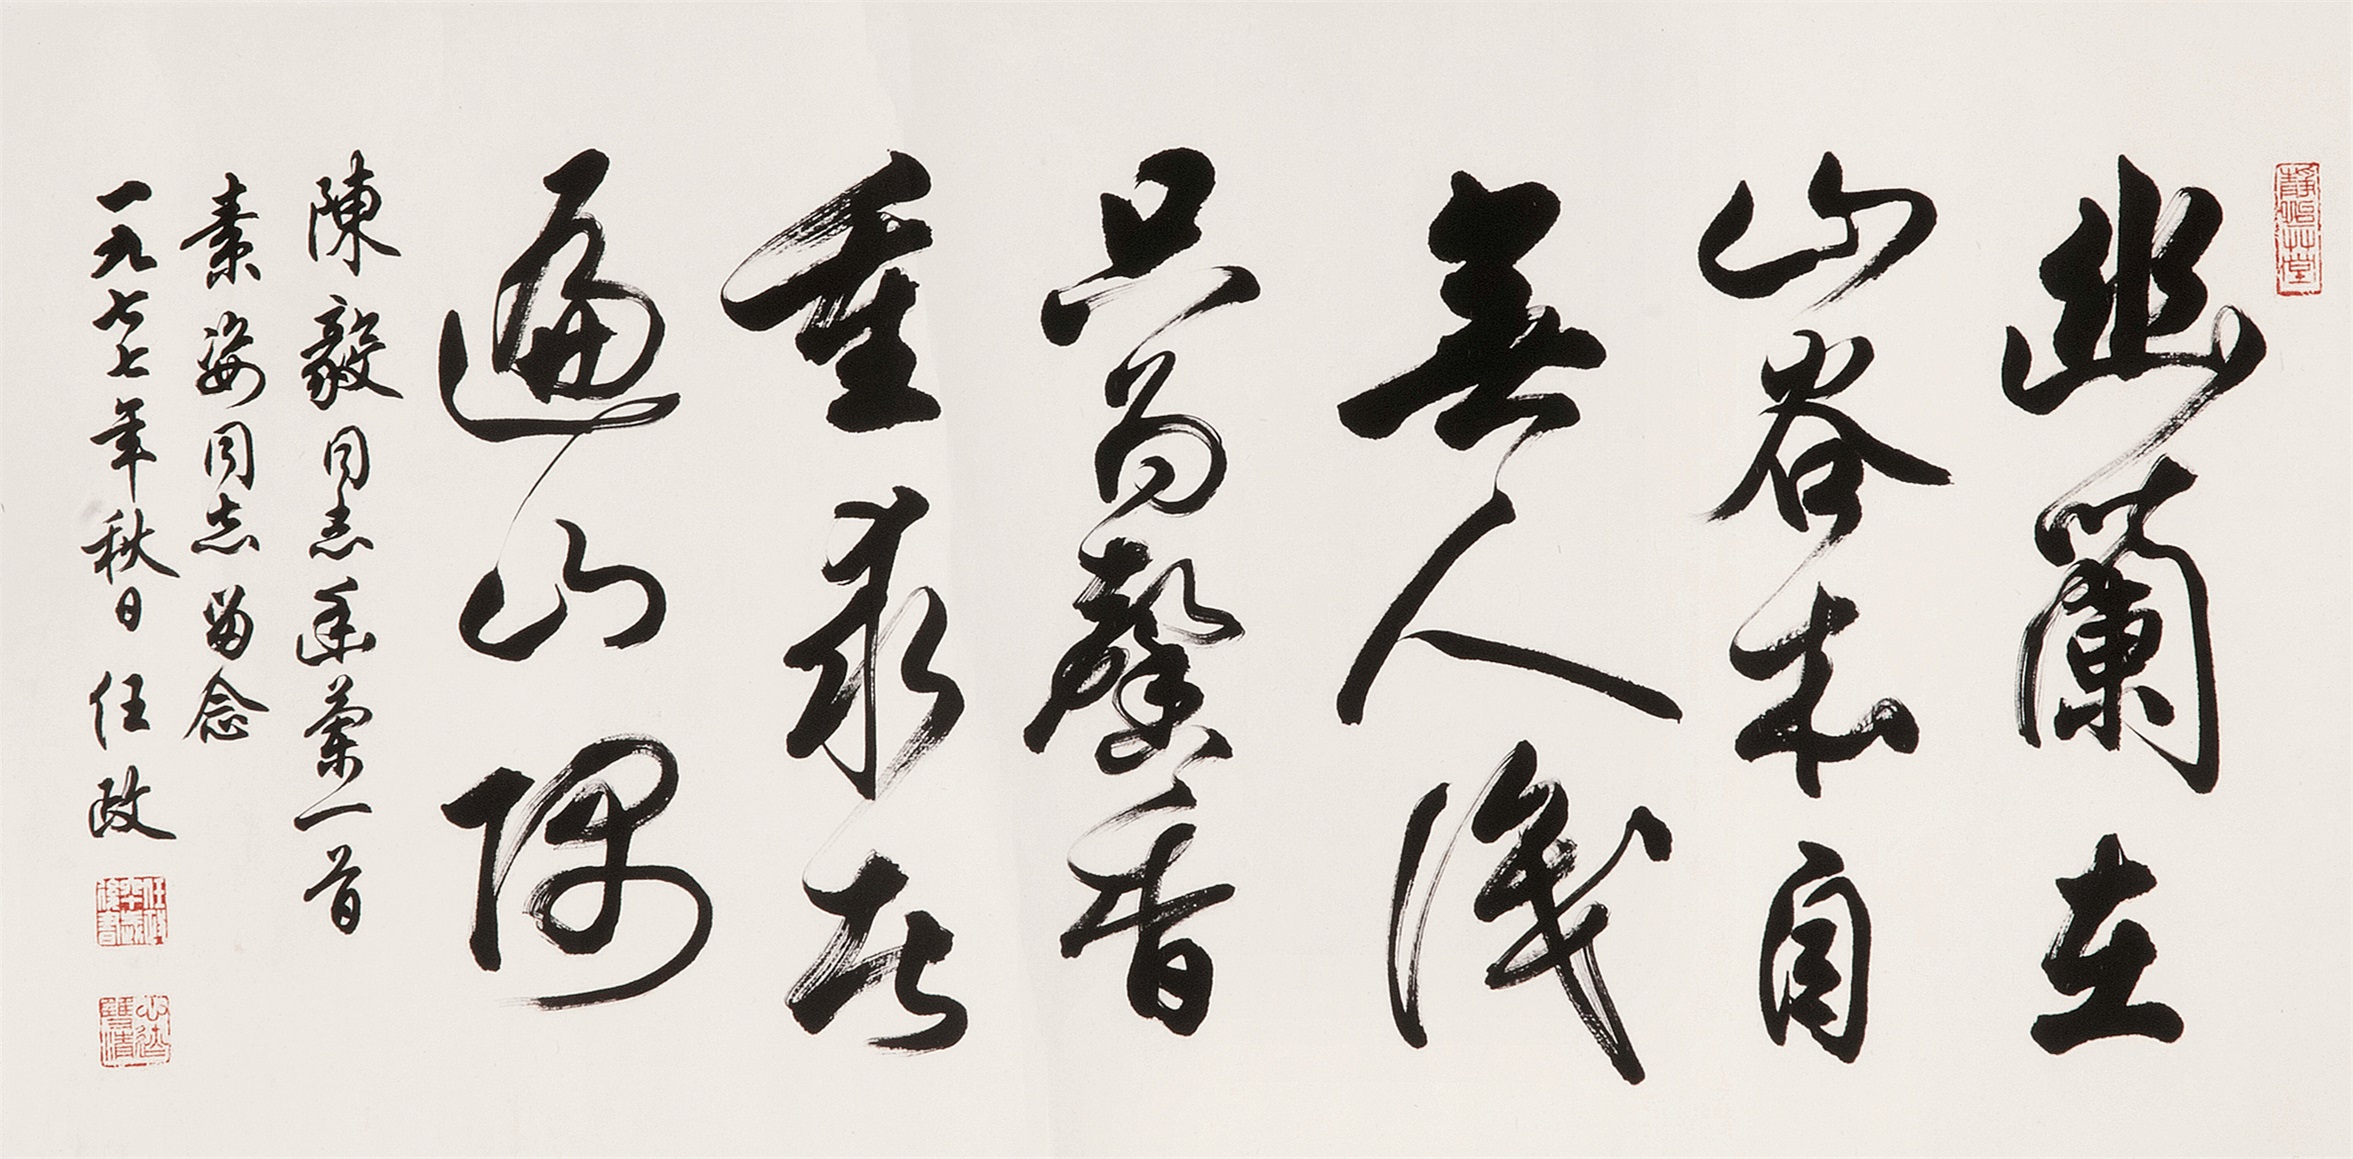 幽蘭在
山谷本自
無人識
只為馨香
重求者
遍山隅
陳毅同志幽蘭一首
素姿同志留念
一九七七年秋日任政